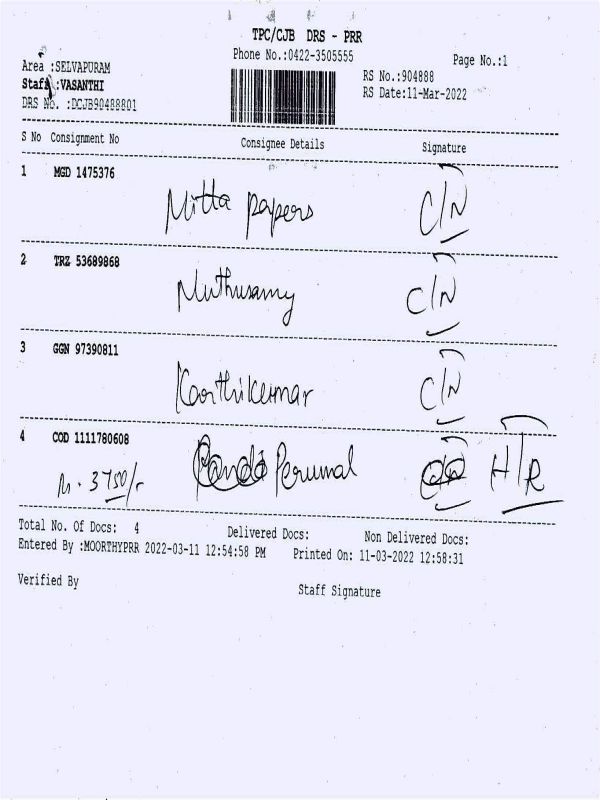 TPC/CJB DRS - PRR
Phone No.:0422-3505555
Page No.:1
Area :SELVAPURAM
Staff :VASANTHI
DRS No. :DCJB90488801
RS No.:904888
RS Date:11-Mar-2022
S No Consignment No Consignee Details Signature
1 MGD 1475376
Mitta papers C/N
2 TRZ 53689868
Muthusamy C/N
3 GGN 97390811
Karthikumar C/N
4 COD 1111780608
3750/- Perumal H/R
Total No. Of Docs: 4 Delivered Docs: Non Delivered Docs:
Entered By :MOORTHYPRR 2022-03-11 12:54:58 PM Printed On: 11-03-2022 12:58:31
Verified By Staff Signature